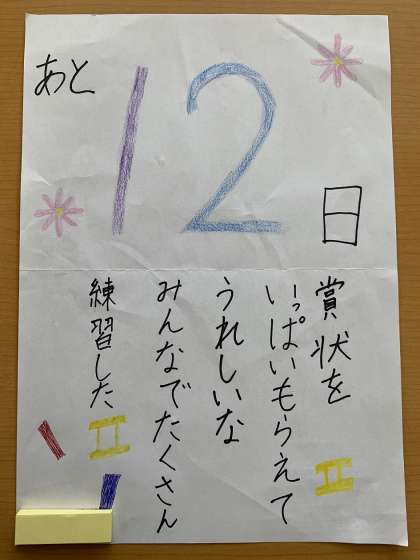 あと
12
日
賞状を
いっぱいもらえて
うれしいな
みんなでたくさん
練習した